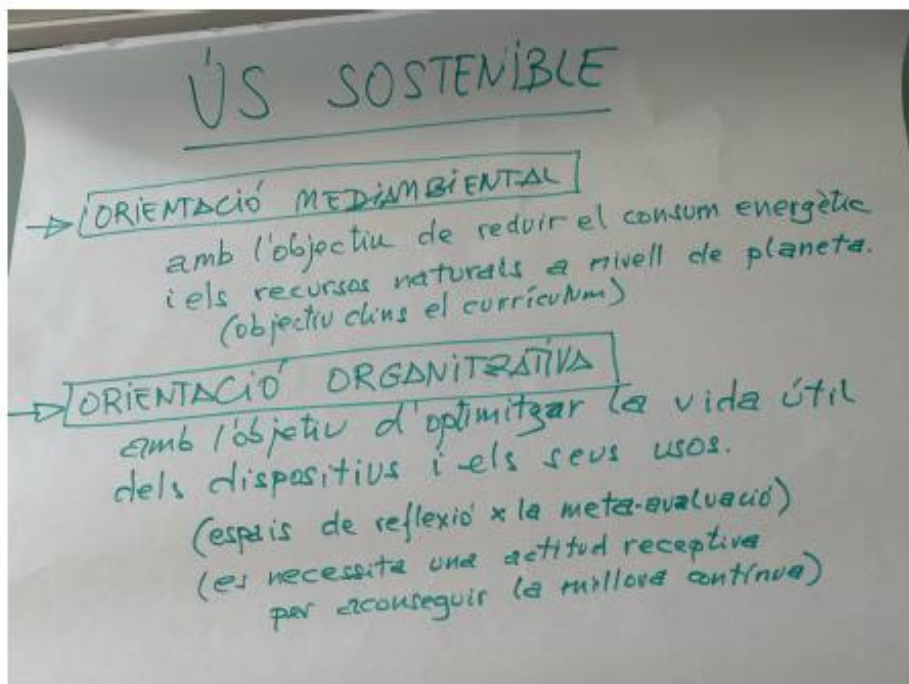 ÚS SOSTENIBLE
→ ORIENTACIÓ MEDIAMBIENTAL
amb l'objectiu de reduir el consum energètic
i els recursos naturals a nivell de planeta.
(objectiu dins el currículum)
→ ORIENTACIÓ ORGANITZATIVA
amb l'objetiu d'optimitzar la vida útil
dels dispositius i els seus usos.
(espais de reflexió x la meta-avaluació)
(es necessita una actitud receptiva
per aconseguir la millora contínua)